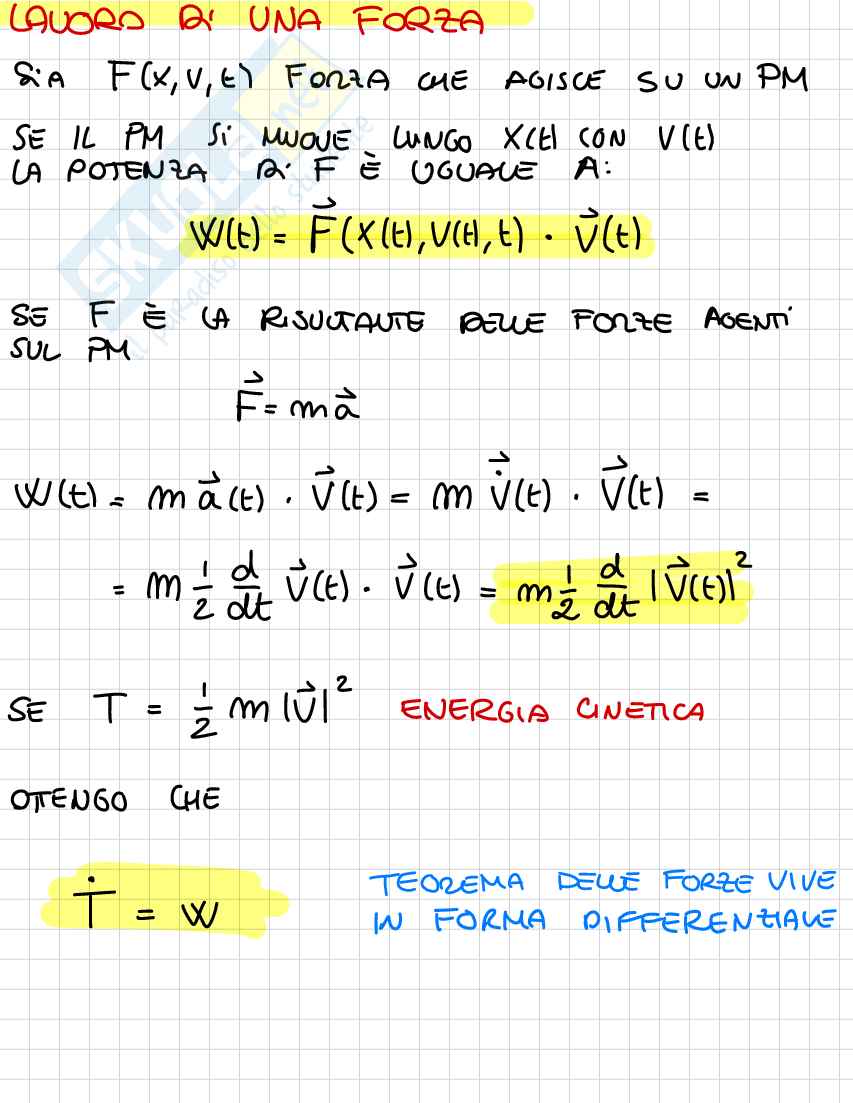 LAVORO DI UNA FORZA
SIA F(X,V,t) FORZA CHE AGISCE SU UN PM
SE IL PM SI MUOVE LUNGO X(t) CON V(t)
LA POTENZA DI F È UGUALE A:
W(t) = F⃗(X(t),V(t),t) · V⃗(t)
SE F È LA RISULTANTE DELLE FORZE AGENTI
SUL PM
F⃗ = m a⃗
W(t) = m a⃗(t) · V⃗(t) = m V̇⃗(t) · V⃗(t) =
= m 1/2 d/dt V⃗(t) · V⃗(t) = m 1/2 d/dt |V⃗(t)|²
SE T = 1/2 m |V⃗|² ENERGIA CINETICA
OTTENGO CHE
Ṫ = W TEOREMA DELLE FORZE VIVE
IN FORMA DIFFERENZIALE
SKUOLA.net
il paradiso dello studente